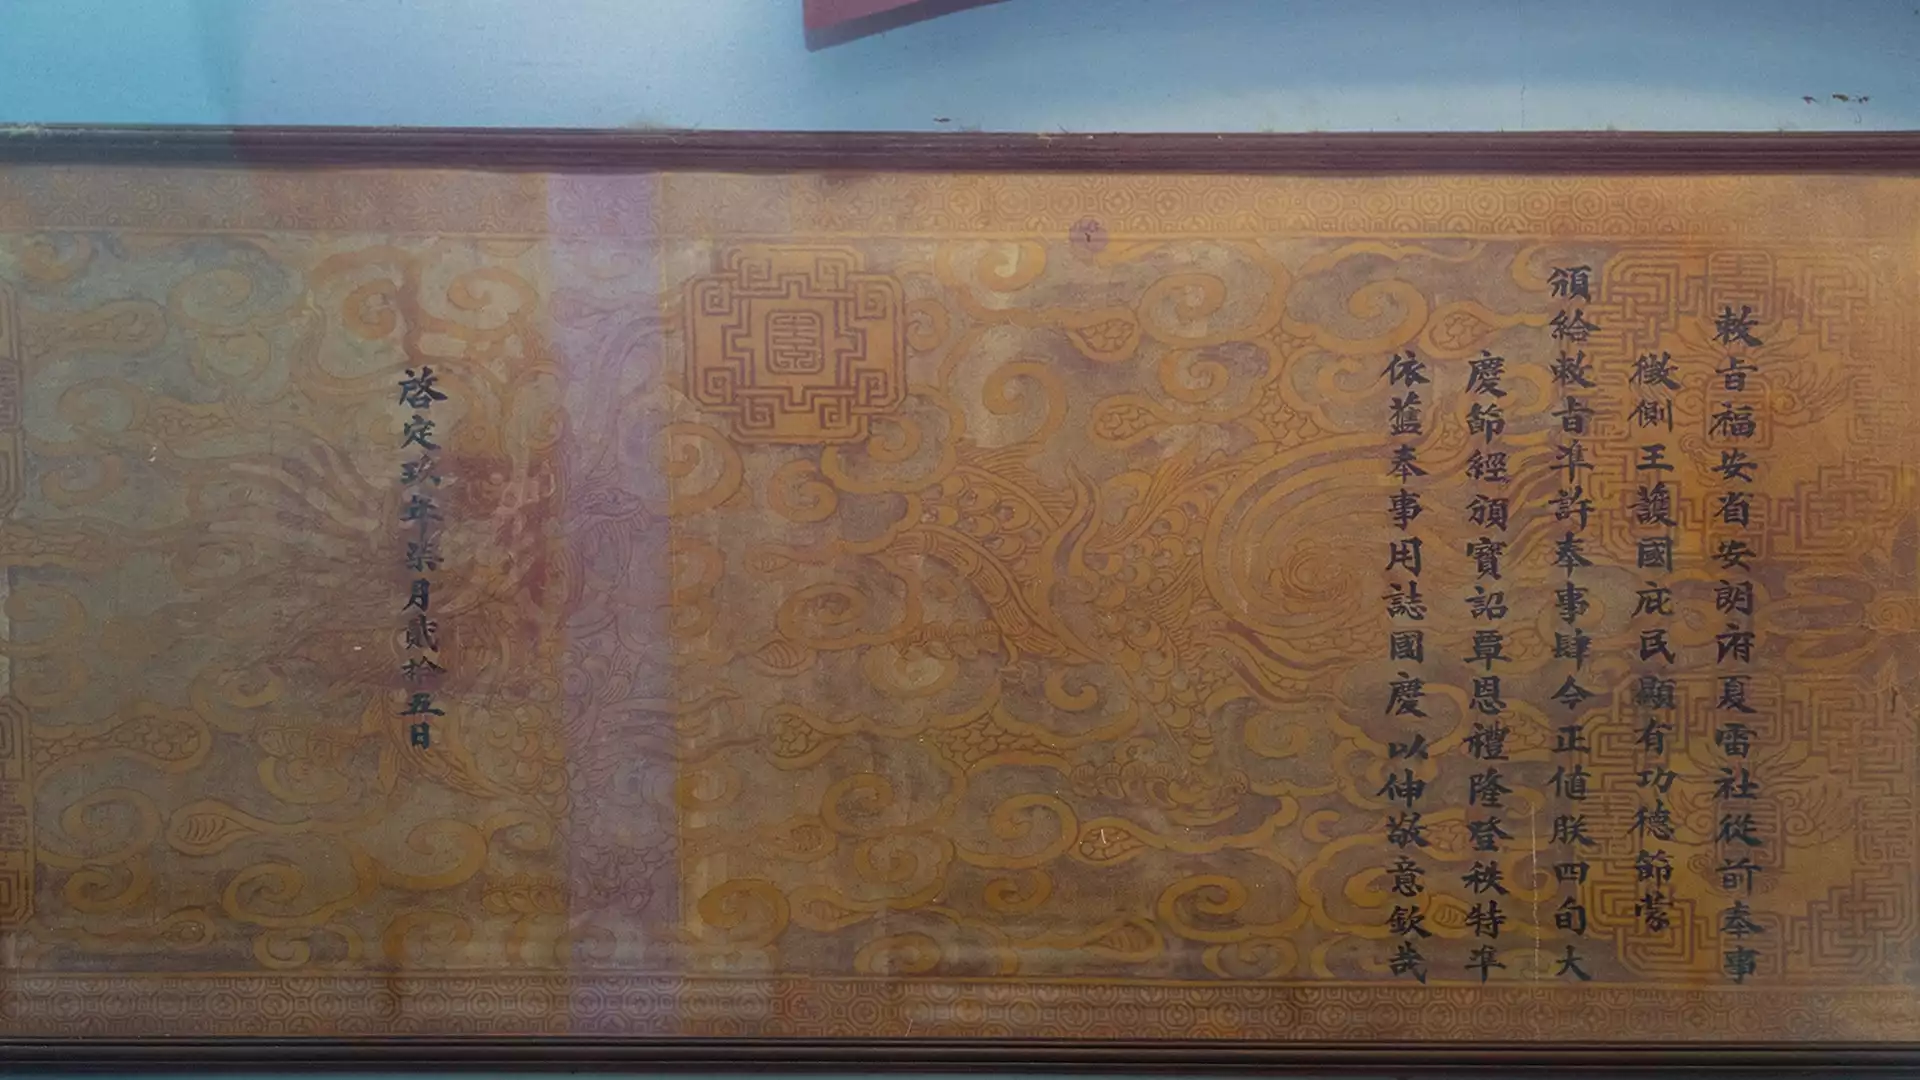 敕旨福安省安朗府夏雷社從前奉事
徵側王護國庇民顯有功德節蒙
頒給敕旨準許奉事肆今正値朕四旬大
慶節經頒寶詔覃恩禮隆登秩特準
依舊奉事用誌國慶以伸敬意欽哉
啓定玖年柒月貳拾五日